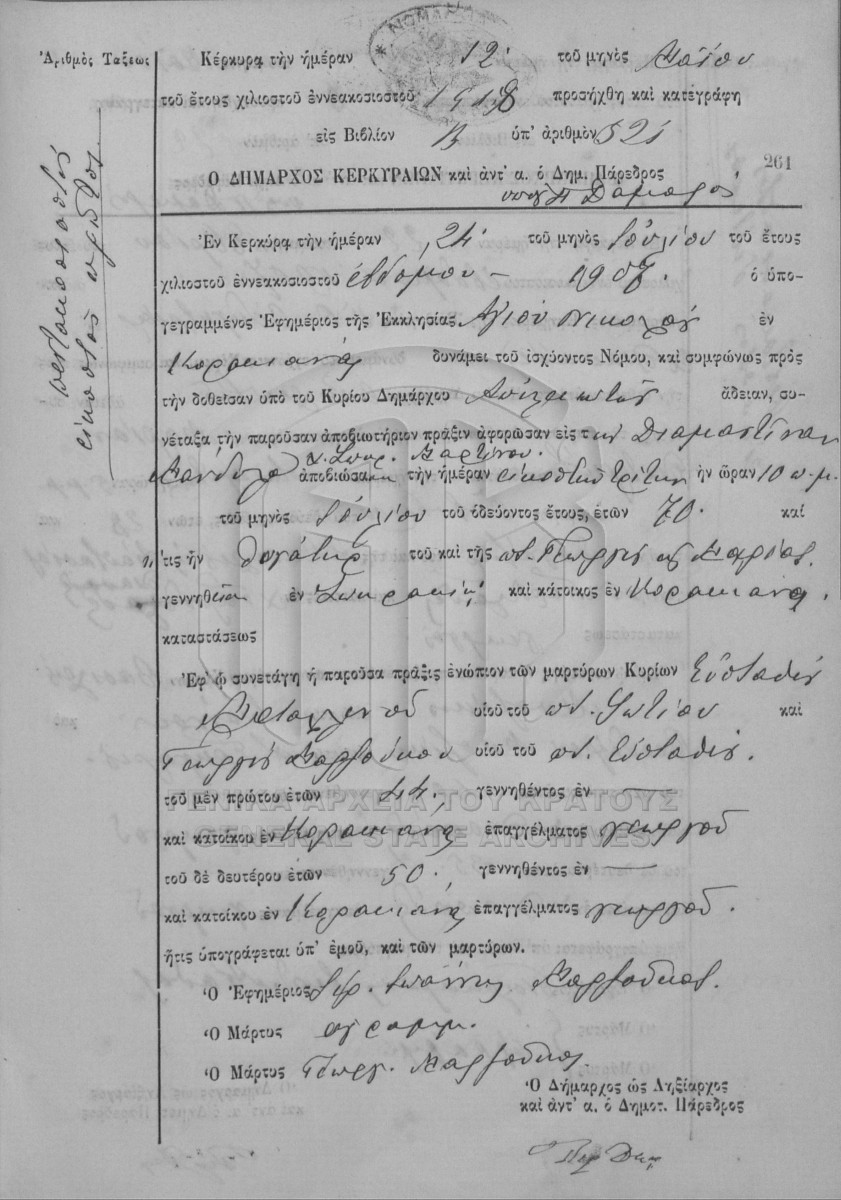 ΝΟΜΑΡ
Ἀριθμὸς Τάξεως
πεντακοσιοστὸς
εἰκοστὸς πρῶτος
Κέρκυρᾳ τὴν ἡμέραν 12 τοῦ μηνὸς
τοῦ ἔτους χιλιοστοῦ ἐννεακοσιοστοῦ 1918 προσήχθη καὶ κατεγράφη
εἰς Βιβλίον Β ὑπ' ἀριθμὸν 521
261
Ο ΔΗΜΑΡΧΟΣ ΚΕΡΚΥΡΑΙΩΝ καὶ ἀντ' α. ὁ Δημ. Πάρεδρος
Ἐν Κερκύρᾳ τὴν ἡμέραν 24 τοῦ μηνὸς Ἰουλίου τοῦ ἔτους
χιλιοστοῦ ἐννεακοσιοστοῦ ἑβδόμου – 1907. ὁ ὑπο-
γεγραμμένος Ἐφημέριος τῆς Ἐκκλησίας Ἁγίου Νικολάου ἐν
Κορακιάνᾳ δυνάμει τοῦ ἰσχύοντος Νόμου, καὶ συμφώνως πρὸς
τὴν δοθεῖσαν ὑπὸ τοῦ Κυρίου Δημάρχου ἄδειαν, συ-
νέταξα τὴν παροῦσαν ἀποβιωτήριον πρᾶξιν ἀφορῶσαν εἰς τ ην Διαμαντίναν
χ. Σπυρ. Μαρτίνου.
ἀποβιώσασαν τὴν ἡμέραν εἰκοστὴν τρίτην ἣν ὥραν 10 π.μ.
τοῦ μηνὸς Ἰουλίου τοῦ ὁδεύοντος ἔτους, ἐτῶν 70. καὶ
ἥτις ἦν θυγάτηρ τοῦ καὶ τῆς ποτ. Γεωργίου καὶ Μαρίας.
γεννηθεῖσα ἐν Σωκρακίῳ καὶ κάτοικος ἐν Κορακιάνᾳ.
καταστάσεως
Ἐφ' ᾧ συνετάγη ἡ παροῦσα πρᾶξις ἐνώπιον τῶν μαρτύρων Κυρίων Εὐσταθίου
υἱοῦ τοῦ ποτ. Φωτίου καὶ
Γεωργίου Μαρζούκου υἱοῦ τοῦ ποτ. Εὐσταθίου.
τοῦ μὲν πρώτου ἐτῶν 44, γεννηθέντος ἐν —
ΓΕΝΙΚΑ ΑΡΧΕΙΑ ΤΟΥ ΚΡΑΤΟΥΣ
καὶ κατοίκου ἐν Κορακιάνᾳ ἐπαγγέλματος γεωργοῦ
GENERAL STATE ARCHIVES
τοῦ δὲ δευτέρου ἐτῶν 50. γεννηθέντος ἐν —
καὶ κατοίκου ἐν Κορακιάνᾳ ἐπαγγέλματος γεωργοῦ.
ἥτις ὑπογράφεται ὑπ' ἐμοῦ, καὶ τῶν μαρτύρων.
Ὁ Ἐφημέριος Ἱερ. Ἰωάννης Μαρζοῦκος.
Ὁ Μάρτυς ἀγράμμ.
Ὁ Μάρτυς Γεωργ. Μαρζοῦκος.
Ὁ Δήμαρχος ὡς Ληξίαρχος
καὶ ἀντ' α. ὁ Δημοτ. Πάρεδρος